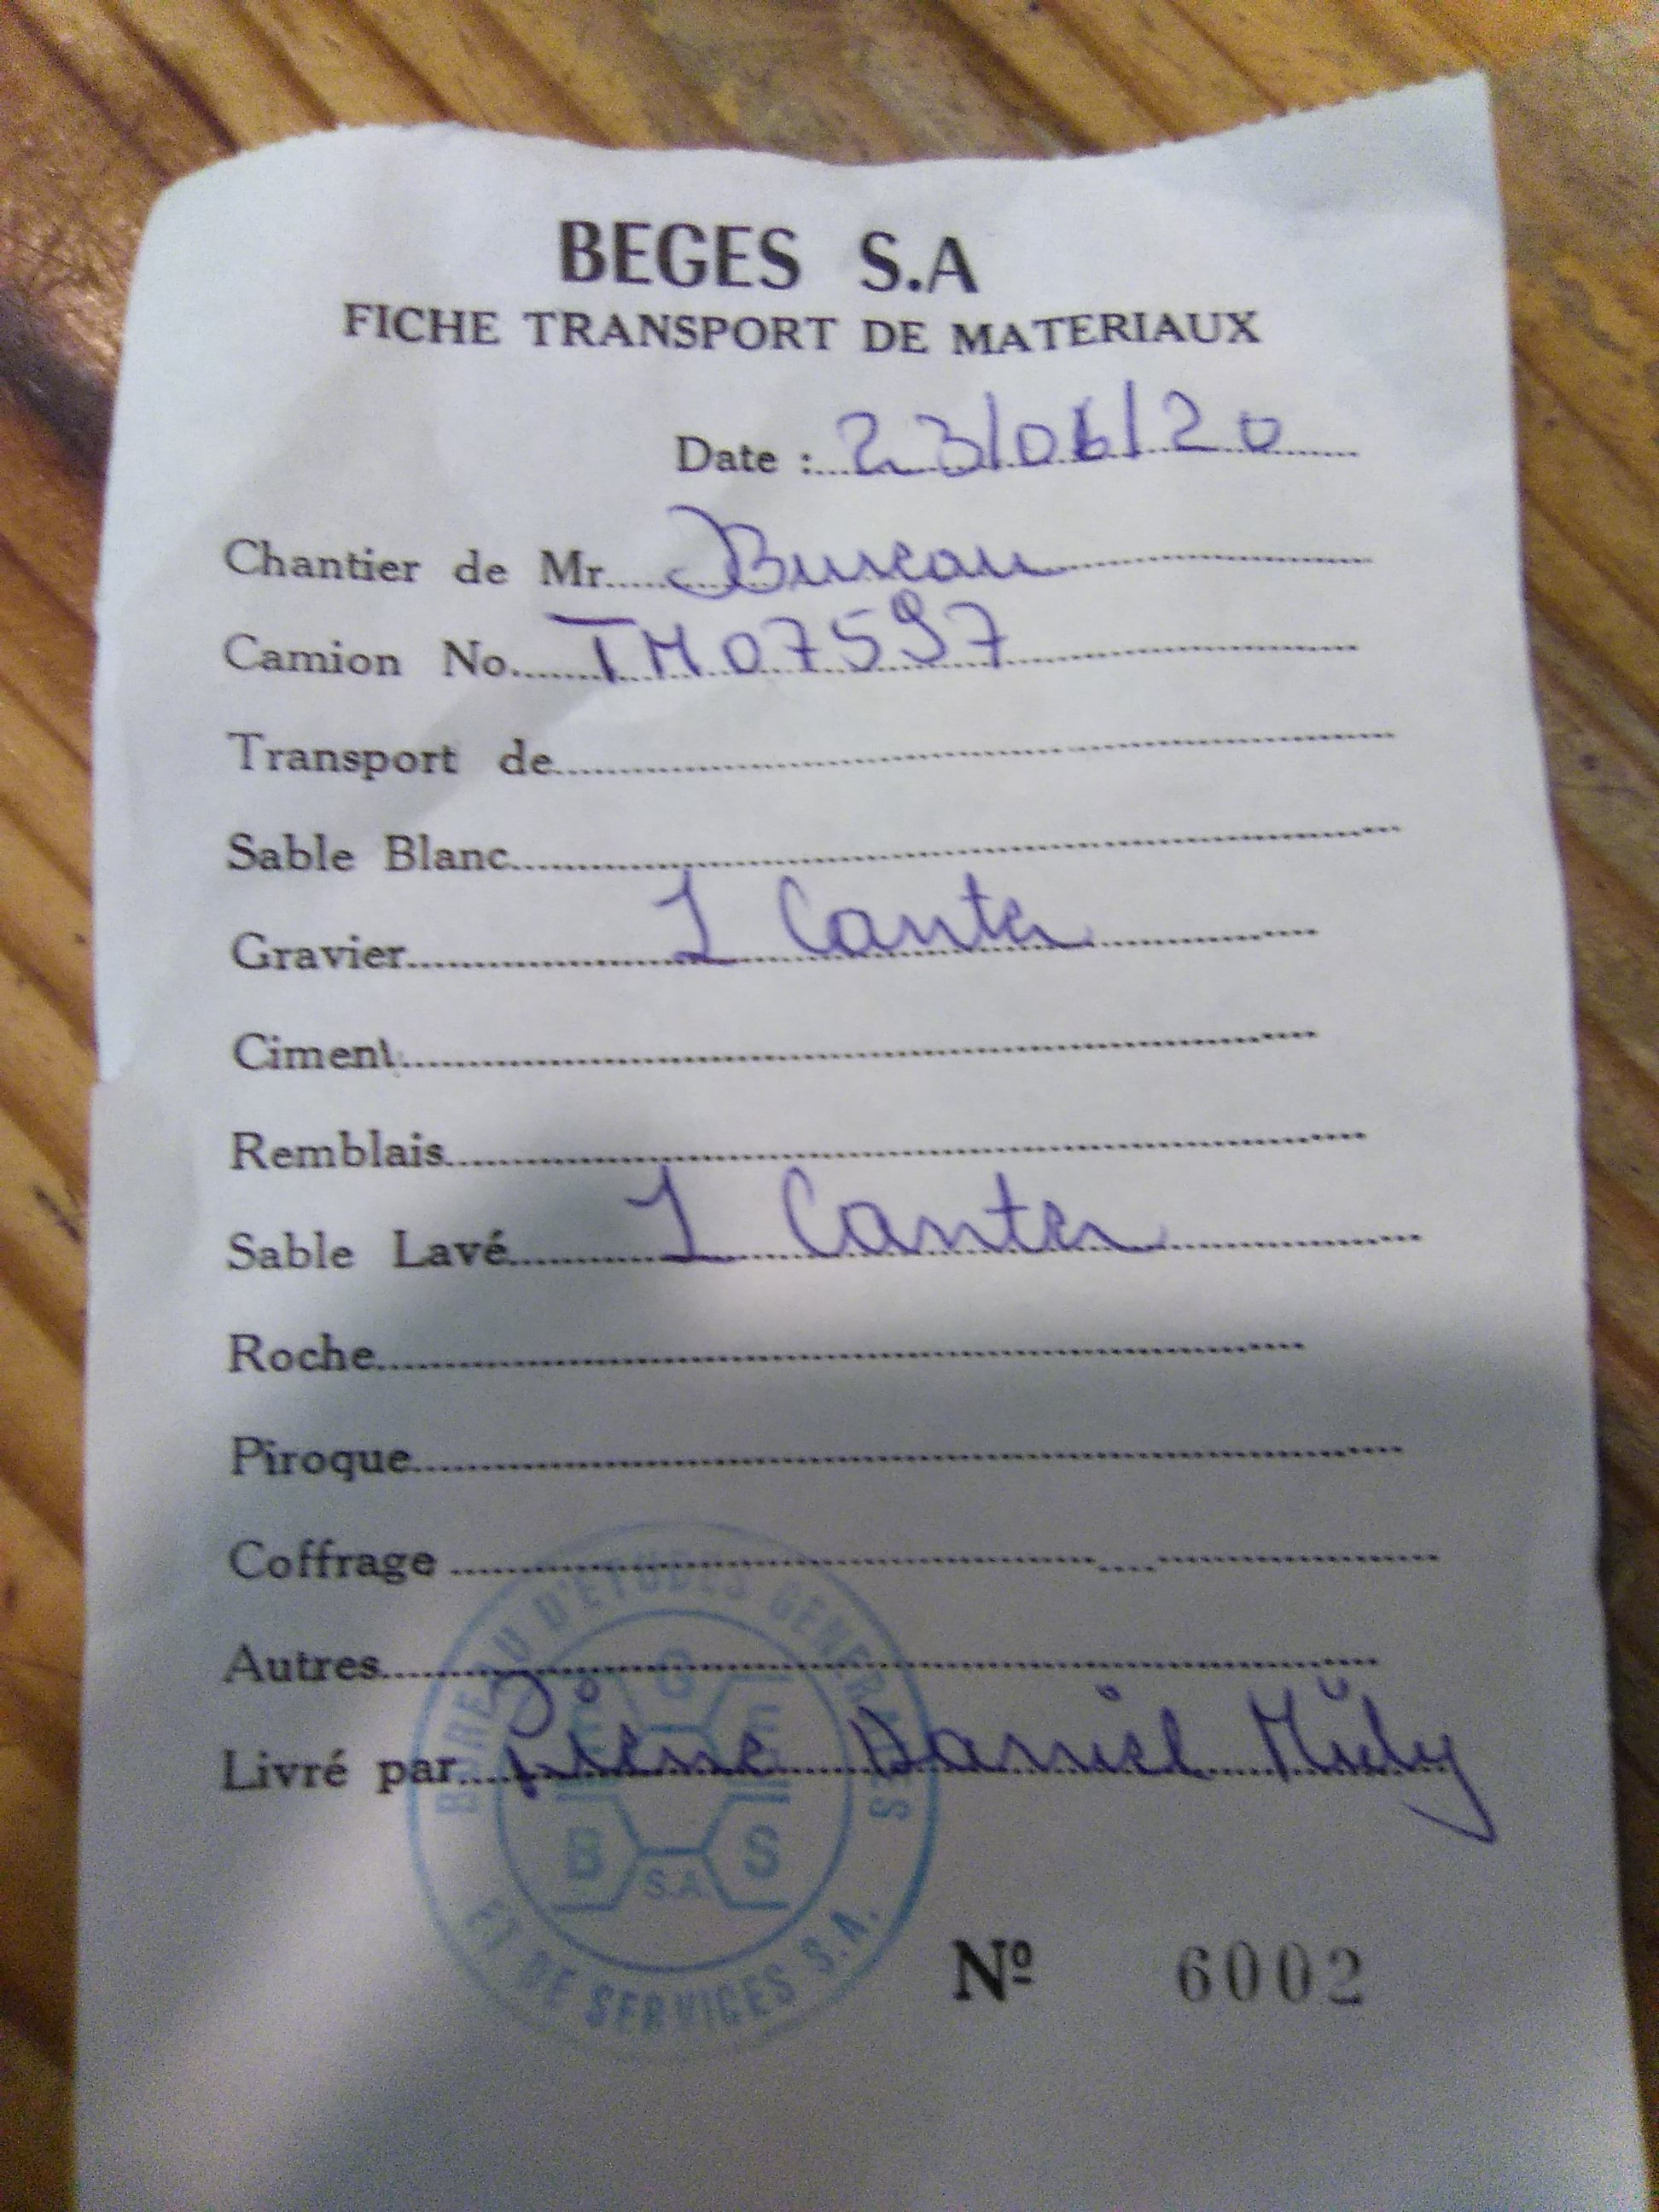 BEGES S.A
FICHE TRANSPORT DE MATERIAUX
Date : 23/06/20
Chantier de Mr Bureau
Camion No. TM07597
Transport de
Sable Blanc
Gravier 1 Canter
Ciment
Remblais
Sable Lavé 1 Canter
Roche
Piroque
Coffrage
Autres
Livré par Pierre Daniel
BUREAU D'ETUDES GENERALES
G
E E
B S
S.A
ET DE SERVICES S.A.
Nº 6002